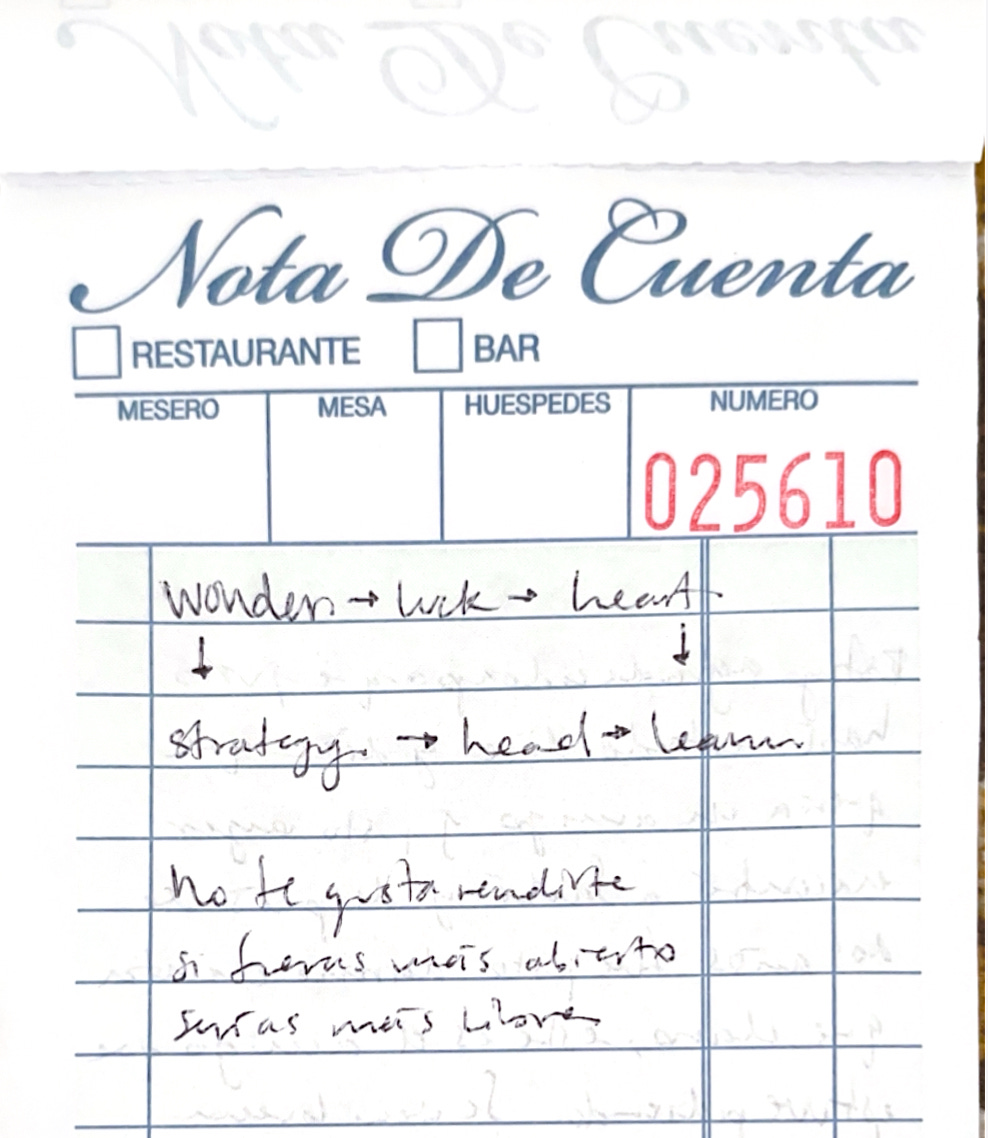 Nota De Cuenta
RESTAURANTE BAR
MESERO MESA HUESPEDES NUMERO
025610
wonder → luck → heart
↓ ↓
strategy → head → learn
no te gusta rendirte
si fueras más abierto
serías más libre